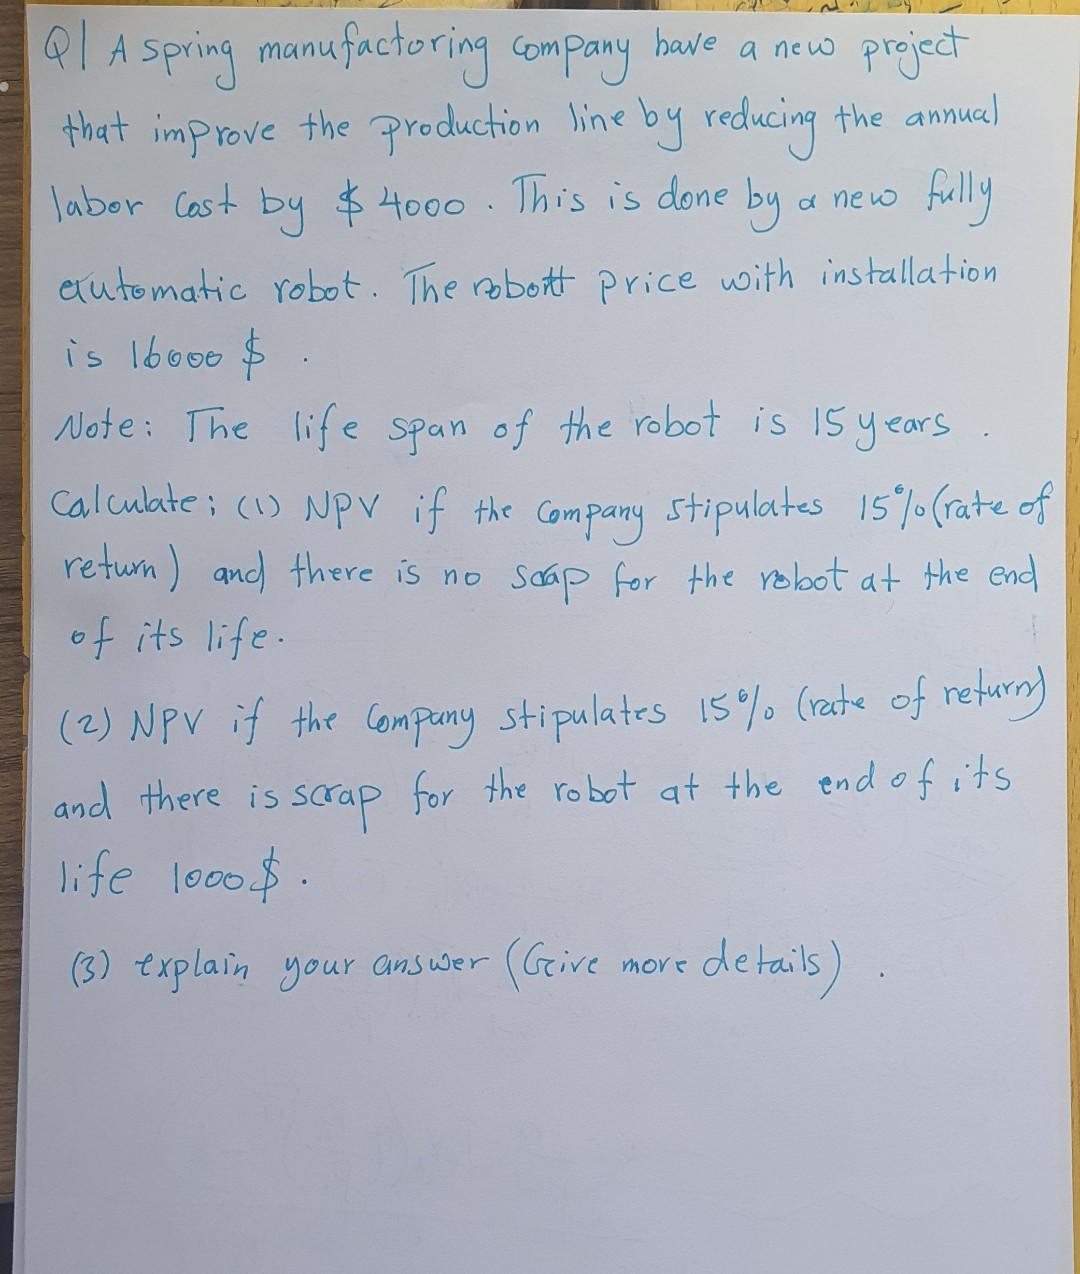 Q1 A spring manufactoring company have a new project
that improve the production line by reducing the annual
labor cost by $ 4000 . This is done by a new fully
automatic robot. The robott price with installation
is 16000 $ .
Note: The life span of the robot is 15 years .
Calculate: (1) NPV if the company stipulates 15% (rate of
return) and there is no scrap for the robot at the end
of its life.
(2) NPV if the company stipulates 15% (rate of return)
and there is scrap for the robot at the end of its
life 1000$.
(3) explain your answer (Give more details) .